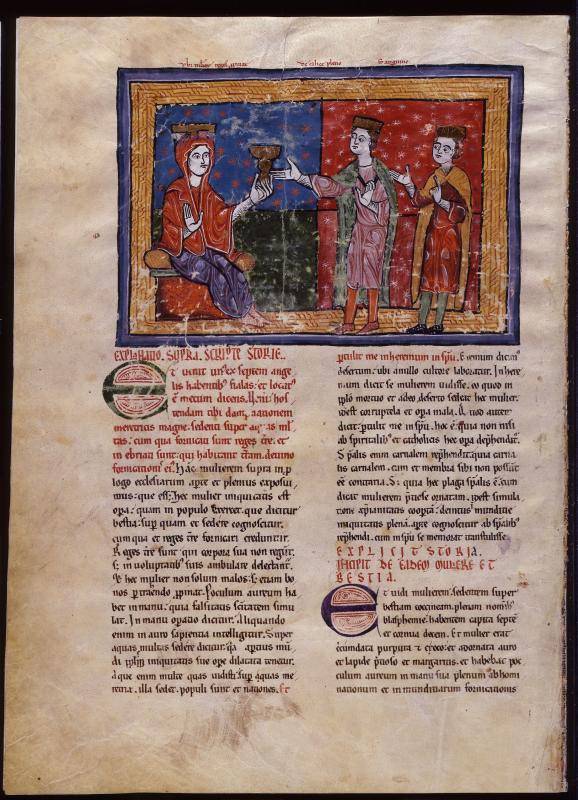 EXPLANATIO. SUPRA. SCRIPTE STORIE.
Et uenit unus ex septem ange
lis habentibus fialas: et locutus
est mecum dicens. Ueni: hos
tendam tibi dampnationem
meretricis magne. sedentis super aquas mul
tas. cum qua fornicati sunt reges terre. et
inebriati sunt: qui habitant terram. de uino
fornicationis eius. Hac mulierem supra in pro
logo ecclesiarum aperte et plenius exposui
mus: que esset: hec mulier iniquitatis est
opera: quam in populo exercet. que dicitur
bestia: super quam et sedere cognoscitur.
cum qua et reges terre fornicari creduntur.
Reges terre sunt: qui corpora sua non regunt.
sed in uoluptatibus suis ambulare delectantur.
Ut hec mulier non solum malos: sed etiam bo
nos pertrahendo propinat. Poculum aureum ha
bet in manu: quia falsitatis sanctitatem simu
lat. In manu operatio dicitur. Aliquando
enim in auro sapientia intelligitur. Super
aquas multas sedere dicitur: quia
iniquitatis sue ope dilatata tenetur.
Aque enim multe quas uidisti: super quas me
retrix illa sedet. populi sunt et nationes. Et
pertulit me in heremum in spiritu. Eremum dicimus
desertum: ubi a nullo cultore laboratur. In here
mum dicit se mulierem uidisse. eo quod in
populo mortuo et a deo deserto sedeat hec mulier.
idest corruptela et opera mala. Quod autem
dicit: pertulit me in spiritu. hoc est: quia non nisi
ab spiritalibus et catholicis hec opera deprehenditur.
Spiritalis enim carnalem reprehendit: quia carna
lis carnalem. cum et membia sibi non possunt
esse contraria. Sed quia hec plaga spiritalis est: cum
dicat mulierem pretiose ornatam. idest simula
tione christianitatis cooperta: deintus immunditie
iniquitatis plena. aperte cognoscitur ab spiritalibus
reprehendi. cum in spiritu se memorat transtulisse.
EXPLICIT STORIA.
INCIPIT DE EADEM MULIERE ET
BESTIA.
Et uidi mulierem sedentem super
bestiam coccineam. plenam nominibus
blasphemie. habentem capita septem
et cornua decem. Et mulier erat
circumdata purpura et cocco: et adornata auro
et lapide pretioso et margaritis. et habebat poc
culum aureum in manu sua plenum abhomi
nationum et inmunditiarum fornicationis